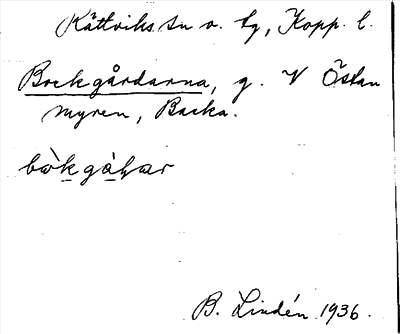 Rättviks sn o. tg, Kopp. l.
Bockgårdarna, g. V Östan
myren, Backa.
B. Lindén 1936.